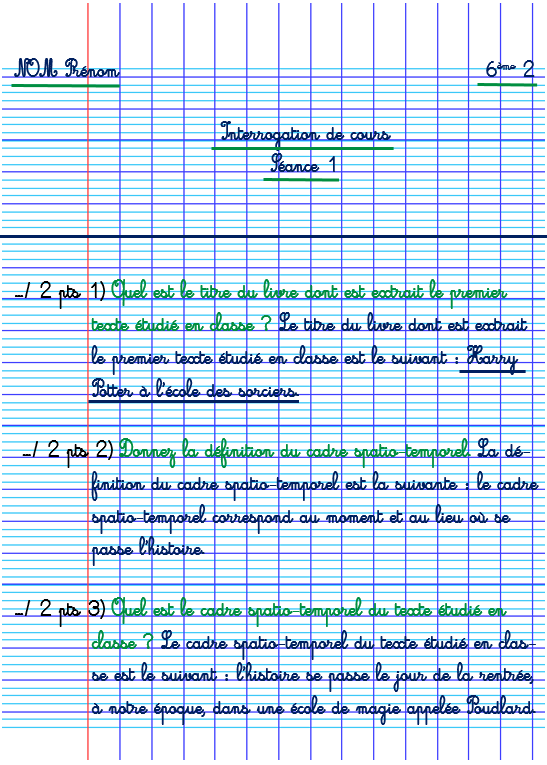 NOM Prénom 6ème 2
Interrogation de cours
Séance 1
_/ 2 pts 1) Quel est le titre du livre dont est extrait le premier
texte étudié en classe ? Le titre du livre dont est extrait
le premier texte étudié en classe est le suivant : Harry
Potter à l'école des sorciers.
_/ 2 pts 2) Donnez la définition du cadre spatio-temporel. La dé-
finition du cadre spatio-temporel est la suivante : le cadre
spatio-temporel correspond au moment et au lieu où se
passe l'histoire.
_/ 2 pts 3) Quel est le cadre spatio-temporel du texte étudié en
classe ? Le cadre spatio-temporel du texte étudié en clas-
se est le suivant : l'histoire se passe le jour de la rentrée,
à notre époque, dans une école de magie appelée Poudlard.